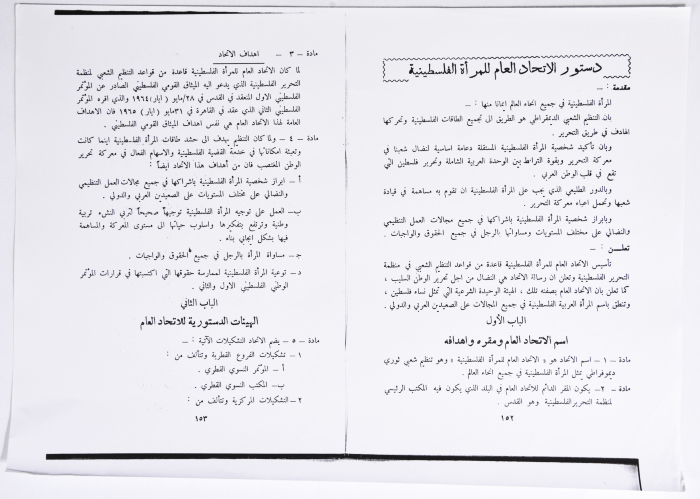 دستور الاتحاد العام للمرأة الفلسطينية
مقدمة : ــ
المرأة الفلسطينية في جميع انحاء العالم ايمانا منها : ــ
بان التنظيم الشعبي الديمقراطي هو الطريق الى تجميع الطاقات الفلسطينية وتحركها
الهادف في طريق التحرير .
وبان تأكيد شخصية المرأة الفلسطينية المستقلة دعامة اساسية لنضال شعبنا في
معركة التحرير وبقوة الترابط بين الوحدة العربية الشاملة وتحرير فلسطين التي
تقع في قلب الوطن العربي .
وبالدور الطليعي الذي يجب على المرأة الفلسطينية ان تقوم به مساهمة في قيادة
شعبها وتحمل اعباء معركة التحرير .
وبابراز شخصية المرأة الفلسطينية باشراكها في جميع مجالات العمل التنظيمي
والنضالي على مختلف المستويات ومساواتها بالرجل في جميع الحقوق والواجبات .
تعلــن : ــ
تأسيس الاتحاد العام للمرأة الفلسطينية قاعدة من قواعد التنظيم الشعبي في منظمة
التحرير الفلسطينية وتعلن ان رسالة الاتحاد هي النضال من اجل تحرير الوطن السليب ،
كما تعلن بان الاتحاد العام بصفته تلك ، الهيئة الوحيدة الشرعية التي تمثل نساء فلسطين ،
وتنطق باسم المرأة العربية الفلسطينية في جميع المجالات على الصعيدين العربي والدولي .
الباب الأول
اسم الاتحاد العام ومقره واهدافه
مادة ــ ١ ــ اسم الاتحاد هو « الاتحاد العام للمرأة الفلسطينية » وهو تنظيم شعبي ثوري
ديموقراطي يمثل المرأة الفلسطينية في جميع انحاء العالم .
مادة ــ ٢ــ يكون المقر الدائم للاتحاد العام في البلد الذي يكون فيه المكتب الرئيسي
لمنظمة التحرير الفلسطينية وهو القدس .
١٥٢
مادة ــ ٣ ــ اهداف الاتحاد
لما كان الاتحاد العام للمرأة الفلسطينية قاعدة من قواعد التنظيم الشعبي لمنظمة
التحرير الفلسطينية الذي يدعو اليه الميثاق القومي الفلسطيني الصادر عن المؤتمر
الفلسطيني الاول المنعقد في القدس في ٢٨/مايو (ايار)١٩٦٤ والذي اقره المؤتمر
الفلسطيني الثاني الذي عقد في القاهرة في ٣١مايو ( ايار ) ١٩٦٥ فان الاهداف
العامة لهذا الاتحاد العام هي نفس اهداف الميثاق القومي الفلسطيني .
مادة ــ ٤ ــ ولما كان التنظيم يهدف الى حشد طاقات المرأة الفلسطينية اينما كانت
وتعبئة امكاناتها في خدمة القضية الفلسطينية والاسهام الفعال في معركة تحرير
الوطن المغتصب فان من أهداف هذا الاتحاد ايضاً :
أ ــ ابراز شخصية المرأة الفلسطينية باشراكها في جميع مجالات العمل التنظيمي
والنضالي على مختلف المستويات على الصعيدين العربي والدولي .
ب ــ العمل على توجيه المرأة الفلسطينية توجيهاً صحيحاً لتربي النشء تربية
وطنية وترتفع بتفكيرها واسلوب حياتها الى مستوى المعركة والمساهمة
فيها بشكل ايجابي بناء .
جـ ــ مساواة المرأة بالرجل في جميع الحقوق والواجبات .
د ــ توعية المرأة الفلسطينية لممارسة حقوقها التي اكتسبتها في قرارات المؤتمر
الوطني الفلسطيني الاول والثاني .
الباب الثاني
الهيئات الدستورية للاتحاد العام
مادة ــ ٥ ــ يضم الاتحاد التشكيلات الآتية : ــ
١ ــ تشكيلات الفروع القطرية وتتألف من :
أ ــ المؤتمر النسوي القطري .
ب ــ المكتب النسوي القطري .
٢ ــ التشكيلات المركزية وتتألف من :
١٥٣